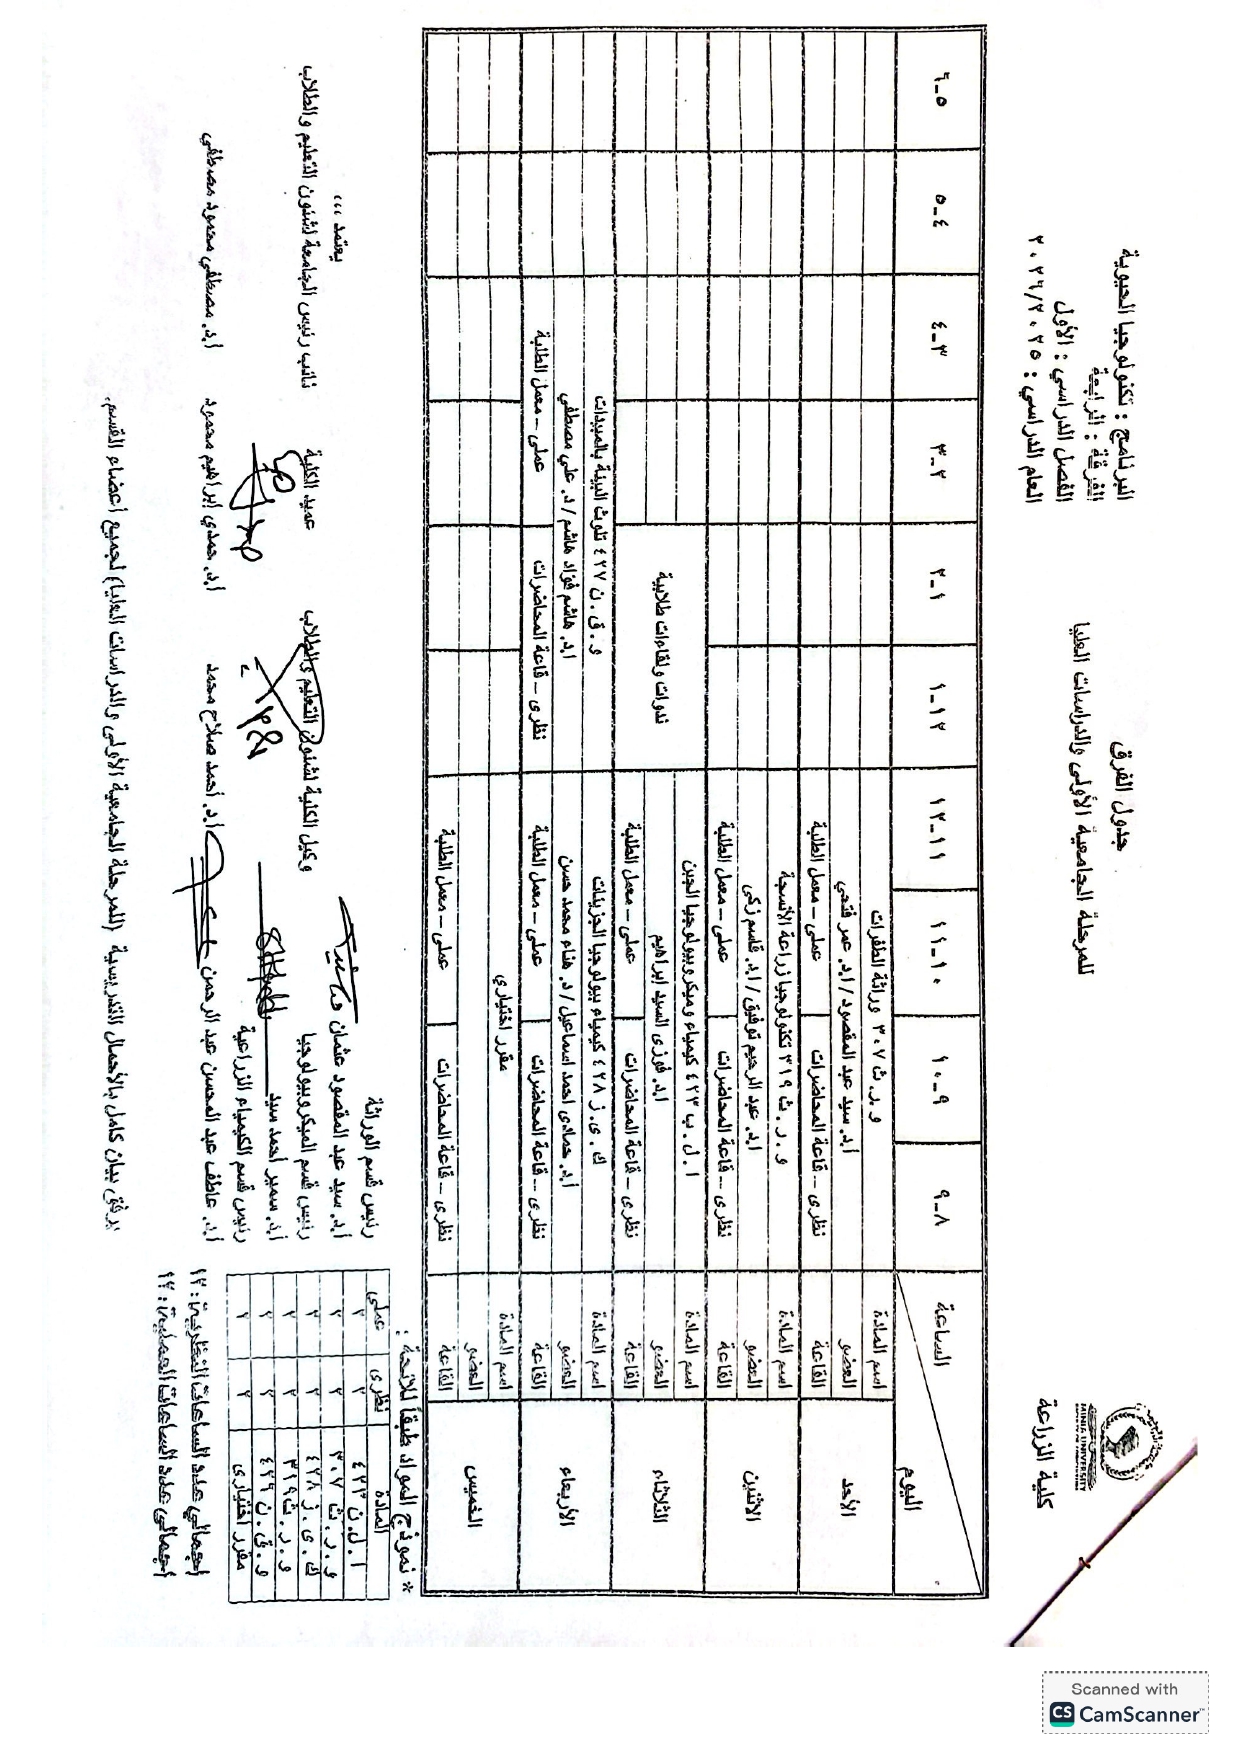 جدول الفرق
للمرحلة الجامعية الأولى والدراسات العليا
البرنامج : تكنولوجيا الحيوية
الفرقة : الرابعة
الفصل الدراسي : الأول
العام الدراسي : ٢٠٢٦/٢٠٢٥
MINIA UNIVERSITY
كلية الزراعة
الساعة ٨-٩ ٩-١٠ ١٠-١١ ١١-١٢ ١٢-١ ١-٢ ٢-٣ ٣-٤ ٤-٥ ٥-٦
اليوم
الأحد
اسم المادة و.ر.ث ٣٠٧ وراثة الطفرات
العضو أ.د. سيد عبد المقصود / ا.د. عمر فتحي
القاعة نظرى – قاعة المحاضرات عملى – معمل الطلبة
الاثنين
اسم المادة و.ر.ث ٣١٩ تكنولوجيا زراعة الأنسجة
العضو ا.د. عبد الرحيم توفيق / ا.د. قاسم زكى
القاعة نظرى – قاعة المحاضرات عملى – معمل الطلبة
الثلاثاء
اسم المادة ا.ل.ب ٤٢٣ كيمياء وميكروبيولوجيا الجبن
العضو ا.د. فوزى السيد ابراهيم
القاعة نظرى – قاعة المحاضرات عملى – معمل الطلبة
ندوات ولقاءات طلابية
الأربعاء
اسم المادة ك.ى.ز ٤٢٨ كيمياء بيولوجيا الجزيئات و.ق.ن ٤٢٧ تلوث البيئة بالمبيدات
العضو أ.د. حمادى احمد اسماعيل / د. هناء محمد حسن ا.د. هاشم فؤاد هاشم / د. علي مصطفي
القاعة نظرى – قاعة المحاضرات عملى – معمل الطلبة نظرى – قاعة المحاضرات عملى – معمل الطلبة
الخميس
اسم المادة مقرر اختياري
العضو
القاعة نظرى – قاعة المحاضرات عملى – معمل الطلبة
* نموذج المواد طبقاً للائحة :
المادة نظرى عملى
ا.ل.ن ٤٢٣ ٢ ٢
و.ر.ث ٣٠٧ ٢ ٢
ك.ى.ز ٤٢٨ ٢ ٢
و.ر.ث ٣١٩ ٢ ٢
و.ق.ن ٤٢٦ ٢ ٢
مقرر اختيارى ٢ ٢
اجمالي عدد الساعات النظرية : ١٢
اجمالي عدد الساعات العملية : ١٢
رئيس قسم الوراثة
أ.د. سيد عبد المقصود عثمان
رئيس قسم الميكروبيولوجيا
أ.د. سمير احمد سيد
رئيس قسم الكيمياء الزراعية
أ.د. عاطف عبد المحسن عبد الرحمن
وكيل الكلية لشئون التعليم والطلاب
ا.د. أحمد صلاح محمد
عميد الكلية
أ.د. حمدي إبراهيم محمود
يعتمد ،،،
نائب رئيس الجامعة لشئون التعليم والطلاب
أ.د. مصطفي محمود مصطفي
يرفق بيان كامل بالأحمال التدريسية (للمرحلة الجامعية الأولى والدراسات العليا) لجميع أعضاء القسم.
Scanned with
CS CamScanner